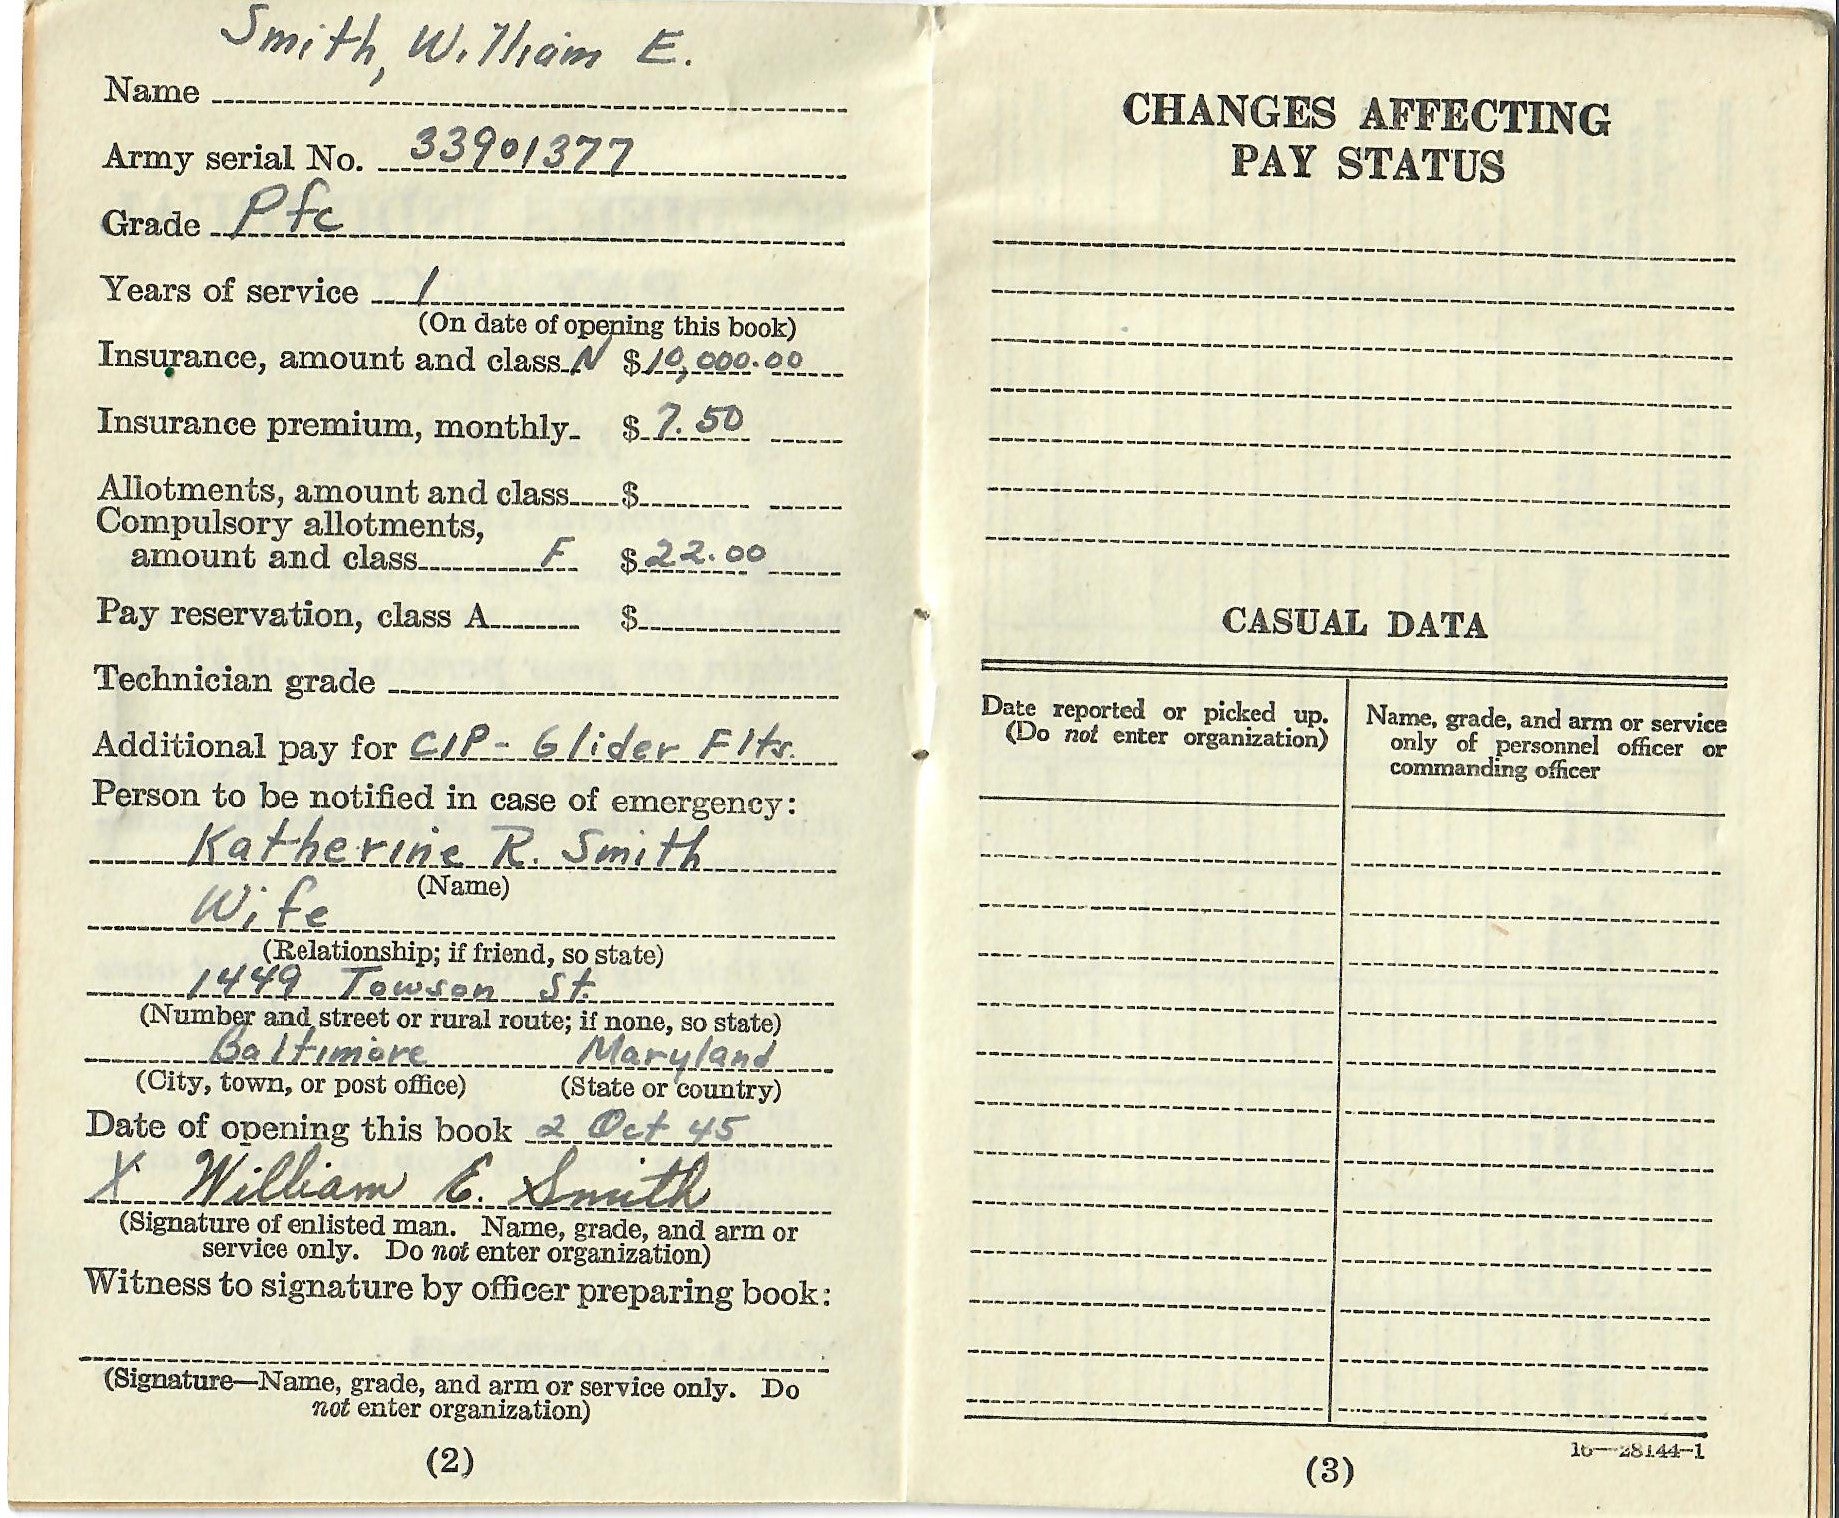 Smith, William E.
Name
Army serial No. 33901377
Grade Pfc
Years of service 1
(On date of opening this book)
Insurance, amount and class N $ 10,000.00
Insurance premium, monthly $ 7.50
Allotments, amount and class $
Compulsory allotments,
amount and class F $ 22.00
Pay reservation, class A $
Technician grade
Additional pay for CIP - Glider Flts.
Person to be notified in case of emergency:
Katherine R. Smith
(Name)
Wife
(Relationship; if friend, so state)
1449 Towson St.
(Number and street or rural route; if none, so state)
Baltimore Maryland
(City, town, or post office) (State or country)
Date of opening this book 2 Oct 45
X William E. Smith
(Signature of enlisted man. Name, grade, and arm or
service only. Do not enter organization)
Witness to signature by officer preparing book:
(Signature—Name, grade, and arm or service only. Do
not enter organization)
(2)
CHANGES AFFECTING
PAY STATUS
CASUAL DATA
Date reported or picked up.
(Do not enter organization)
Name, grade, and arm or service
only of personnel officer or
commanding officer
16—28144-1
(3)